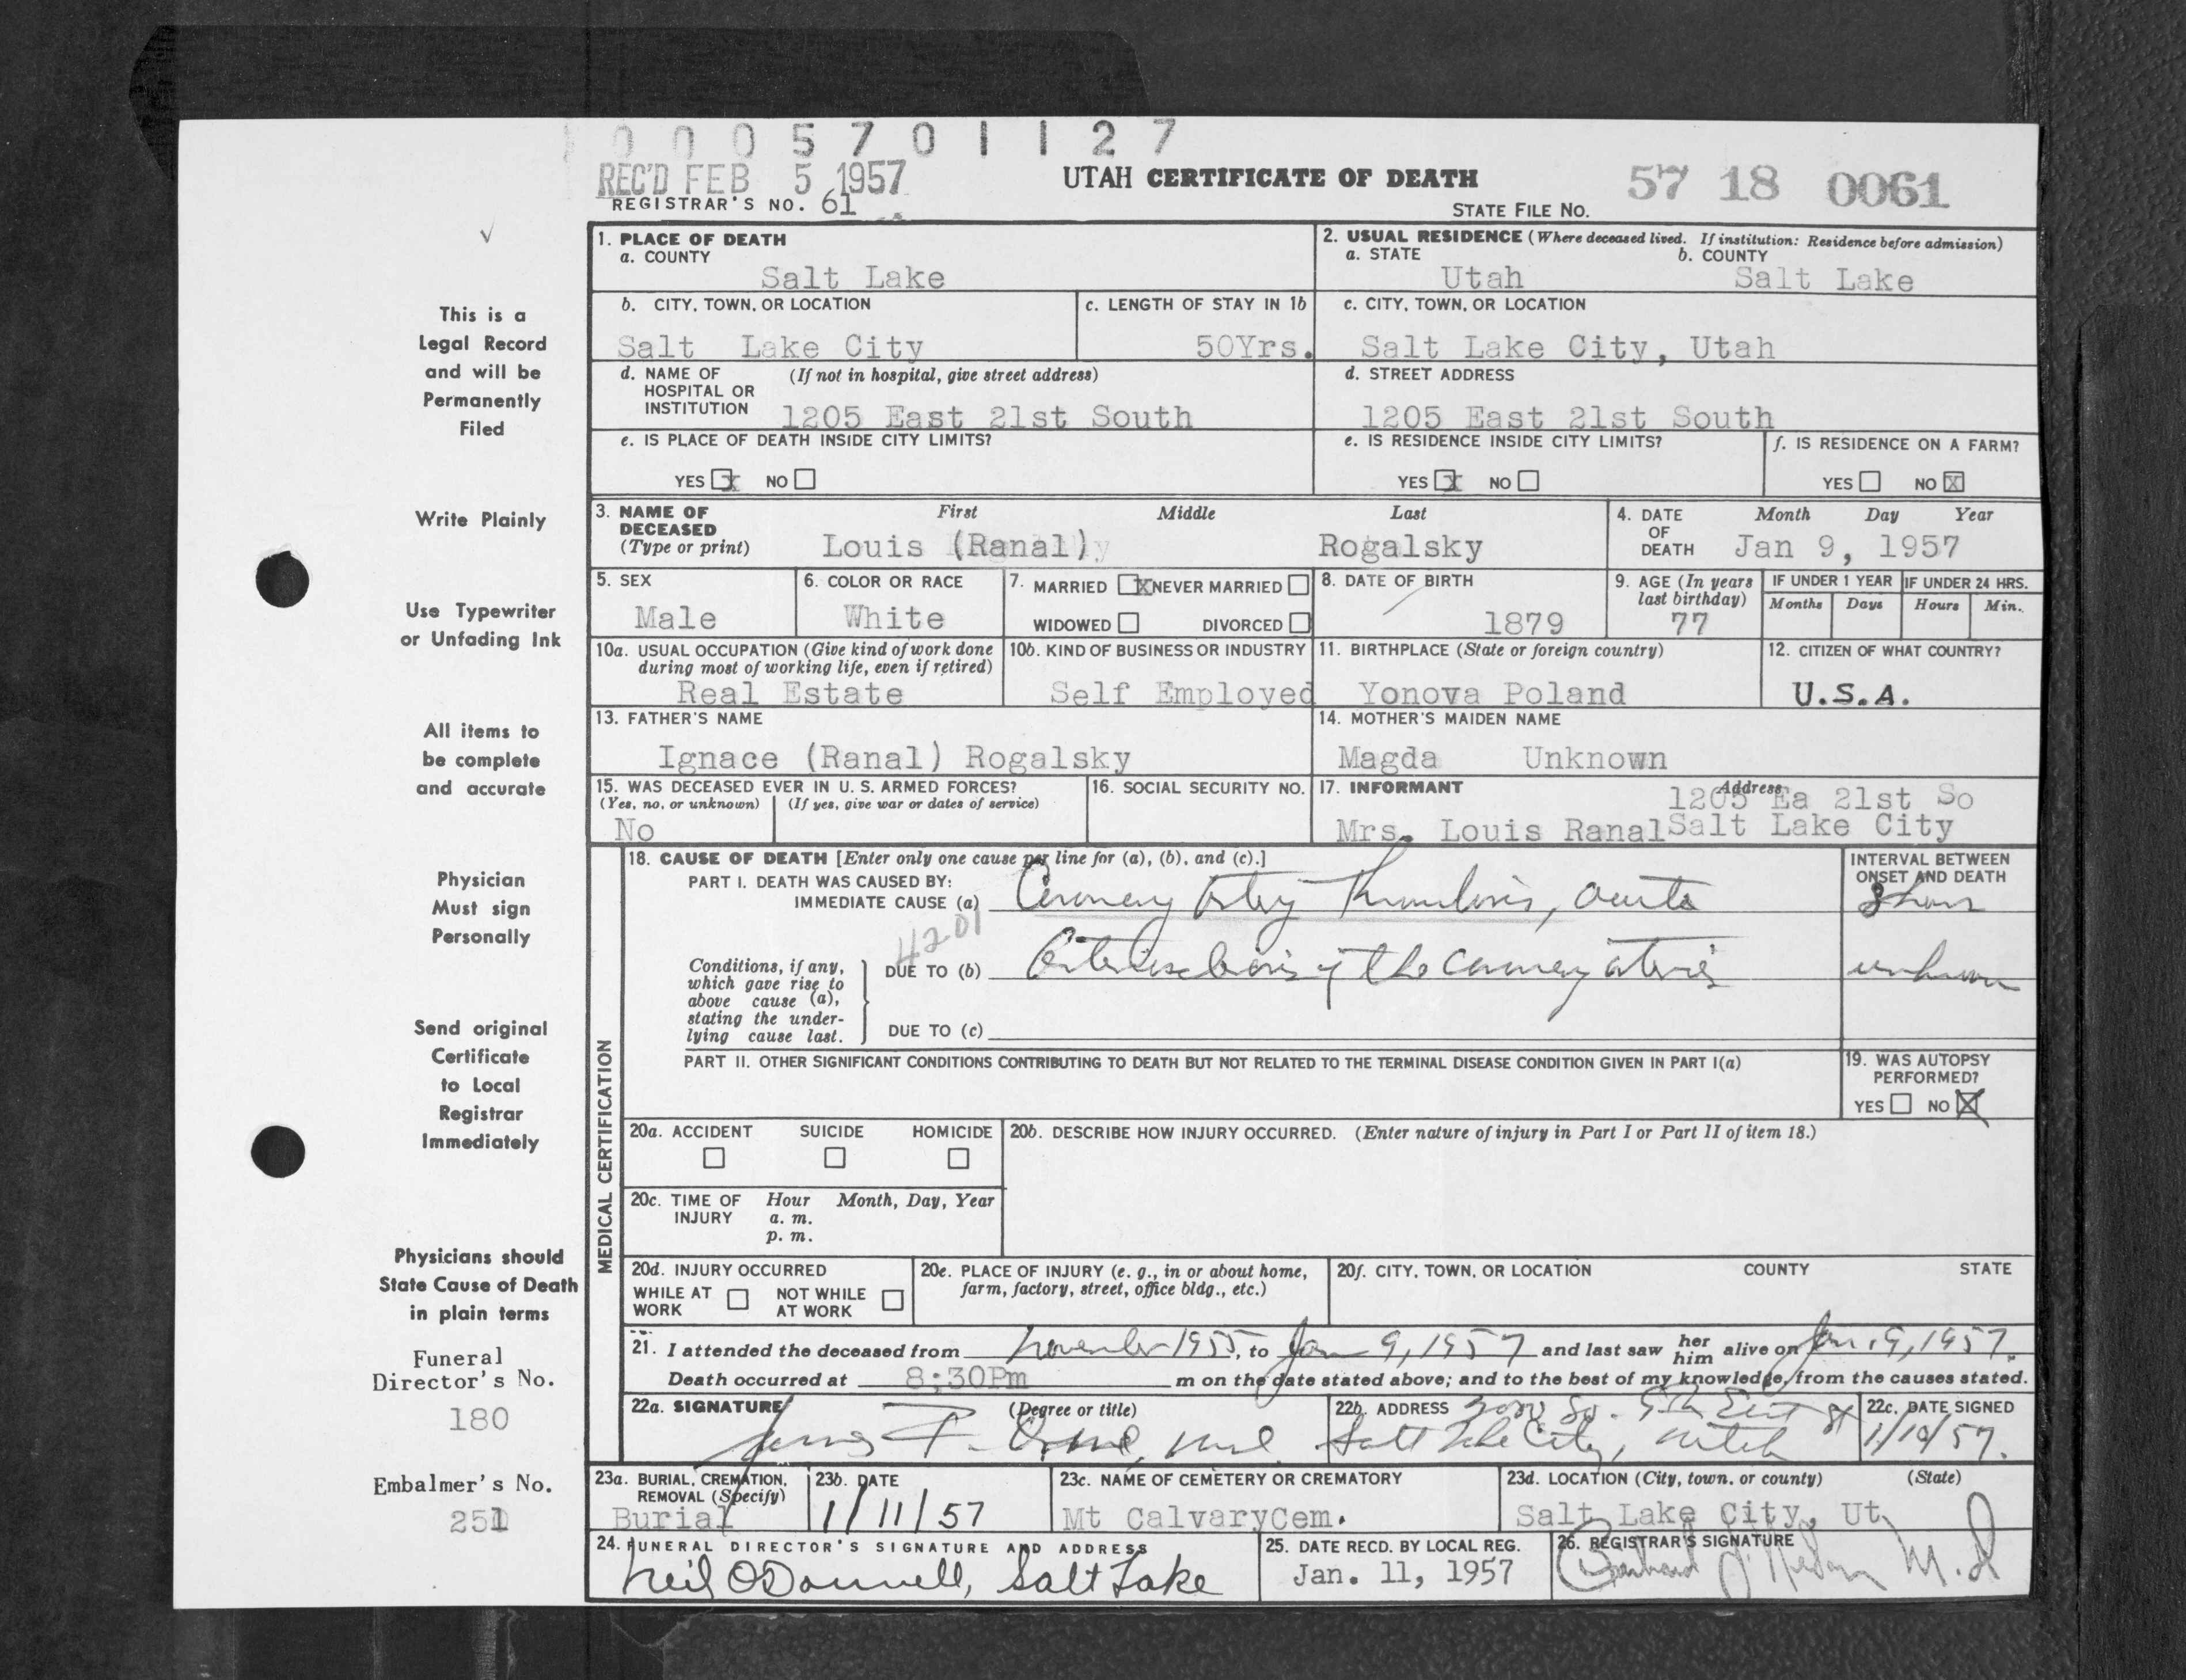 0 0 0 5 7 0 1 1 2 7
REC'D FEB 5 1957
UTAH CERTIFICATE OF DEATH
57 18 0061
REGISTRAR'S NO. 61
STATE FILE NO.
This is a
Legal Record
and will be
Permanently
Filed
Write Plainly
Use Typewriter
or Unfading Ink
All items to
be complete
and accurate
Physician
Must sign
Personally
Send original
Certificate
to Local
Registrar
Immediately
Physicians should
State Cause of Death
in plain terms
Funeral
Director's No.
180
Embalmer's No.
251
1. PLACE OF DEATH
a. COUNTY
Salt Lake
2. USUAL RESIDENCE (Where deceased lived. If institution: Residence before admission)
a. STATE b. COUNTY
Utah Salt Lake
b. CITY, TOWN, OR LOCATION
Salt Lake City
c. LENGTH OF STAY IN 1b
50Yrs.
c. CITY, TOWN, OR LOCATION
Salt Lake City, Utah
d. NAME OF (If not in hospital, give street address)
HOSPITAL OR
INSTITUTION 1205 East 21st South
d. STREET ADDRESS
1205 East 21st South
e. IS PLACE OF DEATH INSIDE CITY LIMITS?
YES X NO
e. IS RESIDENCE INSIDE CITY LIMITS?
YES X NO
f. IS RESIDENCE ON A FARM?
YES NO X
3. NAME OF First Middle Last
DECEASED
(Type or print) Louis (Ranal) Rogalsky
4. DATE Month Day Year
OF
DEATH Jan 9, 1957
5. SEX
Male
6. COLOR OR RACE
White
7. MARRIED X NEVER MARRIED
WIDOWED DIVORCED
8. DATE OF BIRTH
1879
9. AGE (In years
last birthday)
77
IF UNDER 1 YEAR IF UNDER 24 HRS.
Months Days Hours Min.
10a. USUAL OCCUPATION (Give kind of work done
during most of working life, even if retired)
Real Estate
10b. KIND OF BUSINESS OR INDUSTRY
Self Employed
11. BIRTHPLACE (State or foreign country)
Yonova Poland
12. CITIZEN OF WHAT COUNTRY?
U.S.A.
13. FATHER'S NAME
Ignace (Ranal) Rogalsky
14. MOTHER'S MAIDEN NAME
Magda Unknown
15. WAS DECEASED EVER IN U. S. ARMED FORCES?
(Yes, no, or unknown) (If yes, give war or dates of service)
No
16. SOCIAL SECURITY NO.
17. INFORMANT Address
1205 Ea 21st So
Mrs. Louis Ranal Salt Lake City
MEDICAL CERTIFICATION
18. CAUSE OF DEATH [Enter only one cause per line for (a), (b), and (c).]
INTERVAL BETWEEN
ONSET AND DEATH
PART I. DEATH WAS CAUSED BY:
IMMEDIATE CAUSE (a) Coronary Artery Thrombosis, acute
4201
Conditions, if any,
which gave rise to
above cause (a),
stating the under-
lying cause last.
DUE TO (b) Arteriosclerosis of the coronary arteries unknown
DUE TO (c)
PART II. OTHER SIGNIFICANT CONDITIONS CONTRIBUTING TO DEATH BUT NOT RELATED TO THE TERMINAL DISEASE CONDITION GIVEN IN PART I(a)
19. WAS AUTOPSY
PERFORMED?
YES NO X
20a. ACCIDENT SUICIDE HOMICIDE
20b. DESCRIBE HOW INJURY OCCURRED. (Enter nature of injury in Part I or Part II of item 18.)
20c. TIME OF Hour Month, Day, Year
INJURY a. m.
p. m.
20d. INJURY OCCURRED
WHILE AT NOT WHILE
WORK AT WORK
20e. PLACE OF INJURY (e. g., in or about home,
farm, factory, street, office bldg., etc.)
20f. CITY, TOWN, OR LOCATION COUNTY STATE
21. I attended the deceased from November 1955, to Jan 9, 1957 and last saw her him alive on Jan. 9, 1957.
Death occurred at 8:30Pm m on the date stated above; and to the best of my knowledge, from the causes stated.
22a. SIGNATURE (Degree or title)
James P.
22b. ADDRESS So. East St
Salt Lake City, Utah
22c. DATE SIGNED
1/10/57.
23a. BURIAL, CREMATION,
REMOVAL (Specify)
Burial
23b. DATE
1/11/57
23c. NAME OF CEMETERY OR CREMATORY
Mt CalvaryCem.
23d. LOCATION (City, town, or county) (State)
Salt Lake City, Ut.
24. FUNERAL DIRECTOR'S SIGNATURE AND ADDRESS
Neil O'Donnell, Salt Lake
25. DATE RECD. BY LOCAL REG.
Jan. 11, 1957
26. REGISTRAR'S SIGNATURE
M.D